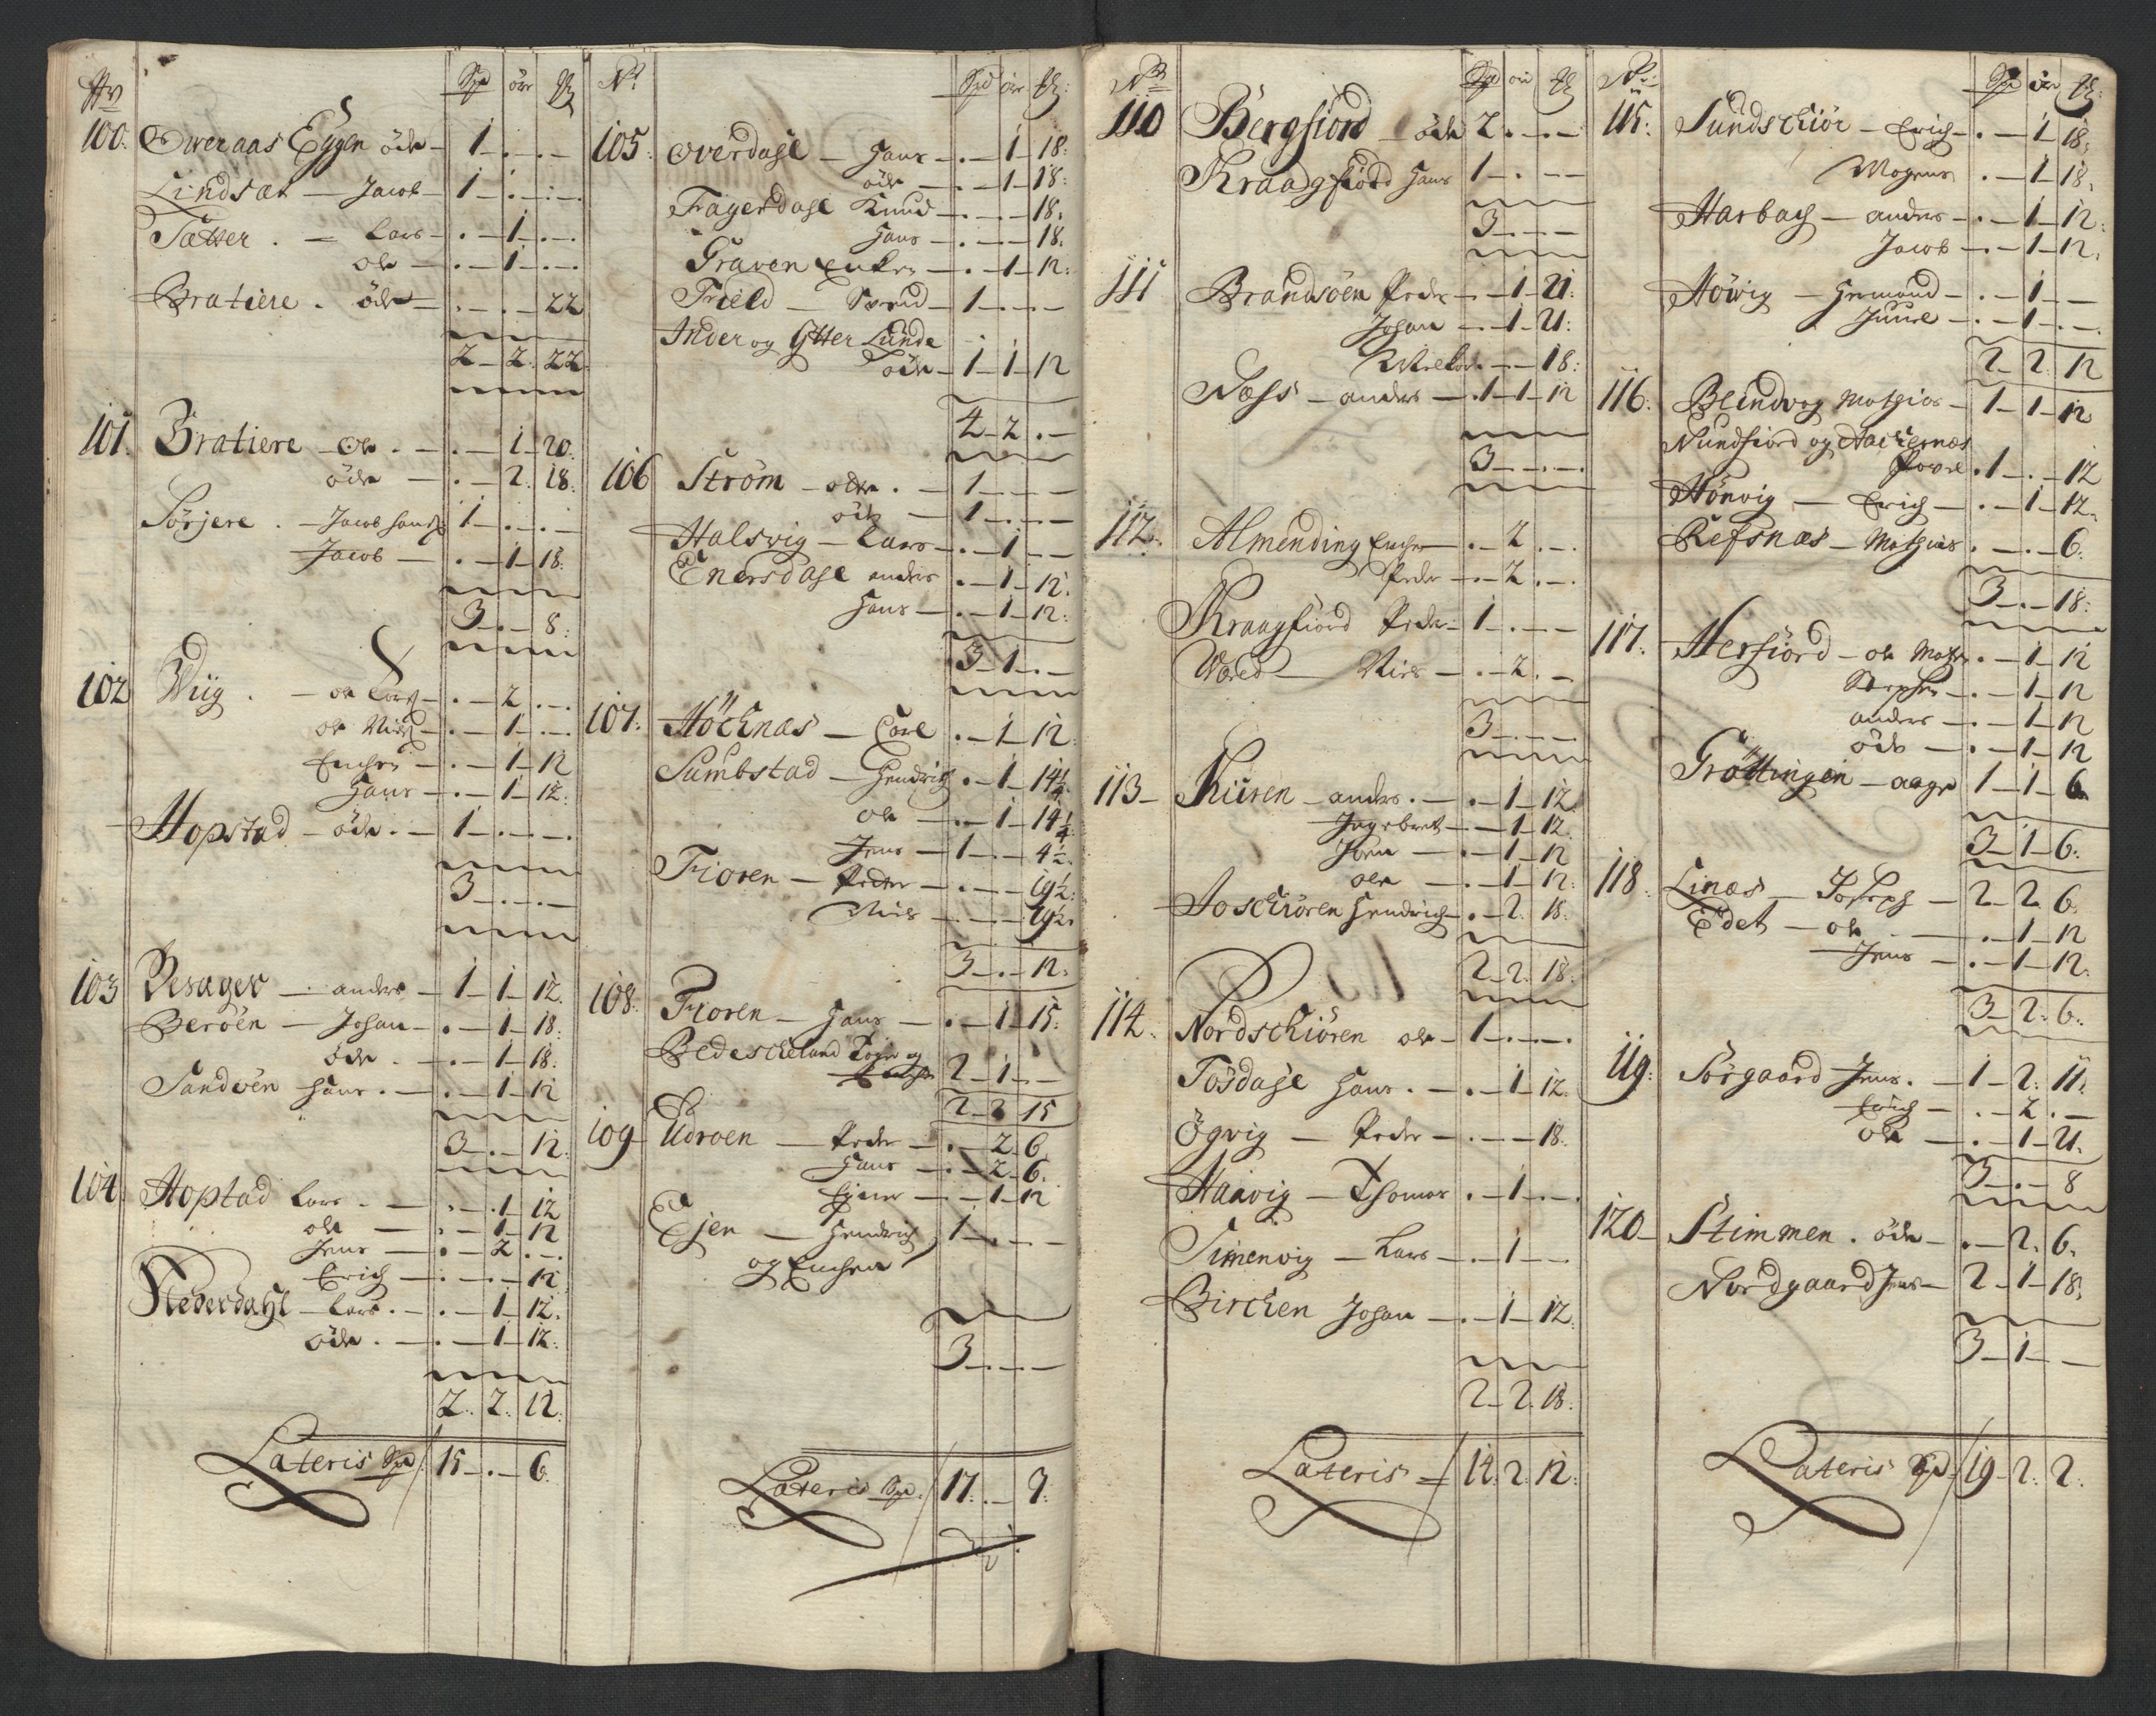 No Spd öre Mk
100. Oweraas Eggen öde 1 - . - . -
Lindsæt - Jacob 1 - . - . -
Sætter . - Lars . - 1 - . -
ole . - 1 - . -
Bratiere . öde . - . - 22
2 - 2. 22
101. Bratiere - Ole . - . - 1 - 20.
öde - . - 2. 18.
Sörjere . - Jacob 1 - . - . -
Jacob - . - 1 - 18.
3 - . - 8.
102 Wiig . - ole Lars - . - 2 . - .
ole Niels - . - 1 - . -
Enchen - . - 1 - 12
Hans - . - 1 - 12.
Hopstad - öde . - 1 - . - . -
3 - . - . -
103 Besager - anders - 1 - 1 - 12.
Beröen - Johan - . - 1 - 18.
öde . - . - 1 - 18.
Sandöen Hans . - . - 1 - 12
3 - . - 12.
104 Hoptad Lars . - . - 1 - 12
ole - . - 1 - 12
Jens - . - 2 . - .
Erich - . - . - 12
Nederdahl - Lars . - . - 1 - 12.
öde . - . - 1 - 12.
2. 2. 12.
Lateris Spd 15 - . - 6.
No Spd öre Mk
105. Overdahl - Hans - . - 1 - 18.
öde - . - 1 - 18.
Fagerdahl Knud - . - . - 18.
Hans - . - . - 18.
Graven Enken - . - 1 - 12.
Field - 1 - . - . -
Inder og Ytter Lunde
öde - 1 - 1 - 12
4 - 2 . -
106 Ström - öde . - 1 - . - . -
öde - 1 - . - . -
Halsvig - Lars - . - 1 - . -
Enersdahl anders . - 1 - 12.
Hans - . - 1 - 12.
3 - 1 . -
107. Höcknas - Carl . - 1 - 12.
Sumbstad - Hendrich . - 1 - 14¼.
ole - . - 1 - 14¼.
Jens - 1 - . - 4½.
Fioren - Peder - . - . - 19½.
Niels - . - . - 19½.
3 - . - 12.
108. Fioren - Hans - . - 1 - 15.
Bedescheland Töger og
2 - 1 - . -
2 - 2 15
109 Udroen - Peder - . - 2 - 6
Hans - . - 2 - 6.
Einer - . - 1 - 12
Ejen - Hendrich 1 - . - . -
og Enchen
3 - . - . -
Lateris Spd. 17. . - 9.
No Spd öre Mk
110 Bergfiord - öde 2 . - . -
Kraagfiord Hans 1 - . - . -
3 - . - . -
111 Brandsöen Peder - . - 1 - 21.
Johan - . - 1 - 21.
- . - 18.
Næss - anders - . 1 - 1 - 12
3 - . - . -
112. Almending Enchen . - 2 . - .
Peder - . - 2 . - .
Kraagfiord Peder - 1 . - . -
Wared - Niels - . - 2 . -
3 - . - . -
113 - Kiiren - anders . - . - 1 - 12
Ingebret - . - 1 - 12.
Jöen - . - 1 - 12
ole - . - 1 - 12.
Joschiören Hendrich - . - 2. 18.
2 - 2. 18.
114. Nordschiören ole - 1 - . - . -
Tösdahl Hans . - . - 1 - 12.
Ögvig - Peder - . - . - 18.
Haavig - Thomas . - 1 - . - .
Simenvig - Lars - . - 1 - . -
Birchen Johan - . - 1 - 12.
2 - 2. 18.
Lateris - 14. 2. 12.
No Spd öre Mk
115. Sundschiör - Erich - . - 1 - 18.
Mogens . - 1 - 18.
Harbach - anders - . - 1 - 12.
Jacob - . - 1 - 12.
Höwig - Hermand - . - 1 - . -
Juuel - . - 1 - . - .
2 - 2. 12
116. Blindvog Mathias - 1 - 1 - 12
Nundfiord og Aachernæs
Povel . 1 - . - 12
Hönvig - Erich - . - 1 - 12.
Refsnæs - Mathias . - . - 6.
3 - . - 18.
117. Herfiord - ole . - 1 - 12
Stephen - . - 1 - 12
anders - . - 1 - 12
öde - . - 1 - 12
Gröttingen - aage 1 - 1 - 6
3 - 1 - 6.
118. Linæs - Joseph - 2 - 2. 6.
Eidet - ole - . - 1 - 12
Jens - . - 1 - 12.
3 - 2. 6.
119. Sörgaard Jens . - 1 - 2. 11.
Erich - . - 2 . -
ole - . - 1 - 21.
3 - . - 8
120 - Stimmen . öde - . - 2. 6.
Nordgaard Jens - 2 - 1 - 18.
3 - 1 - . -
Lateris Spd 19 - 2. 2.